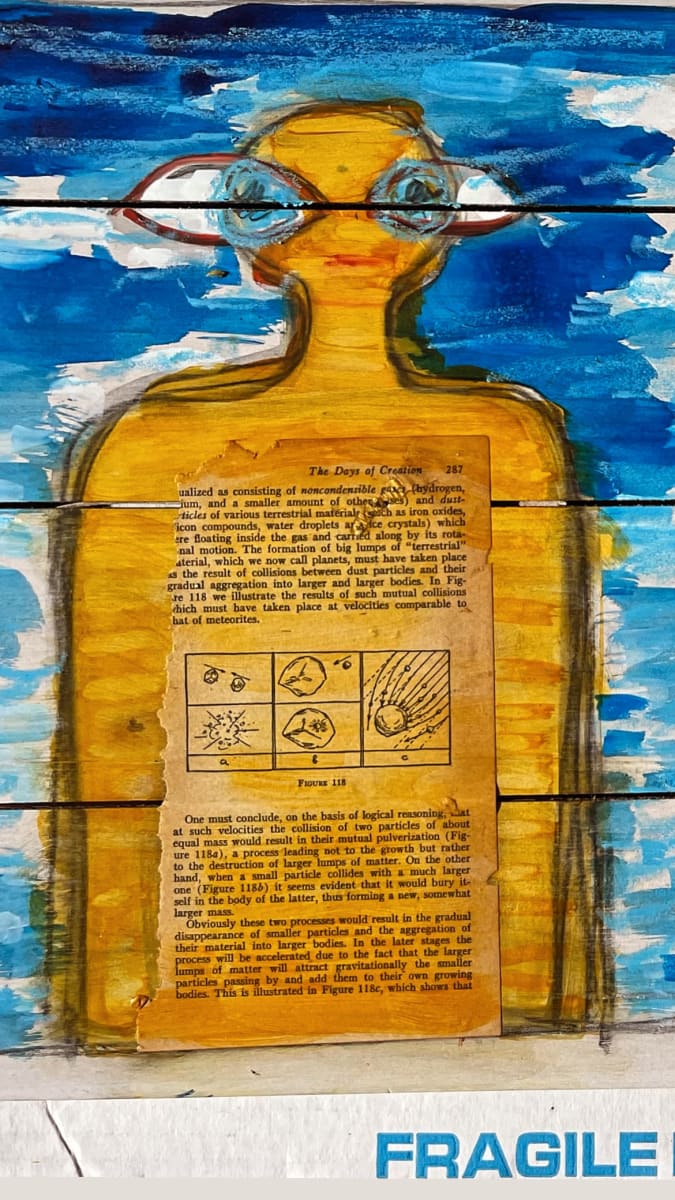 The Days of Creation 287
ualized as consisting of noncondensible (hydrogen,
ium, and a smaller amount of other and dust-
ticles of various terrestrial material (such as iron oxides,
icon compounds, water droplets ice crystals) which
ere floating inside the gas and carried along by its rota-
nal motion. The formation of big lumps of "terrestrial"
aterial, which we now call planets, must have taken place
as the result of collisions between dust particles and their
gradual aggregation into larger and larger bodies. In Fig-
re 118 we illustrate the results of such mutual collisions
which must have taken place at velocities comparable to
hat of meteorites.
a b c
FIGURE 118
One must conclude, on the basis of logical reasoning, that
at such velocities the collision of two particles of about
equal mass would result in their mutual pulverization (Fig-
ure 118a), a process leading not to the growth but rather
to the destruction of larger lumps of matter. On the other
hand, when a small particle collides with a much larger
one (Figure 118b) it seems evident that it would bury it-
self in the body of the latter, thus forming a new, somewhat
larger mass.
Obviously these two processes would result in the gradual
disappearance of smaller particles and the aggregation of
their material into larger bodies. In the later stages the
process will be accelerated due to the fact that the larger
lumps of matter will attract gravitationally the smaller
particles passing by and add them to their own growing
bodies. This is illustrated in Figure 118c, which shows that
FRAGILE